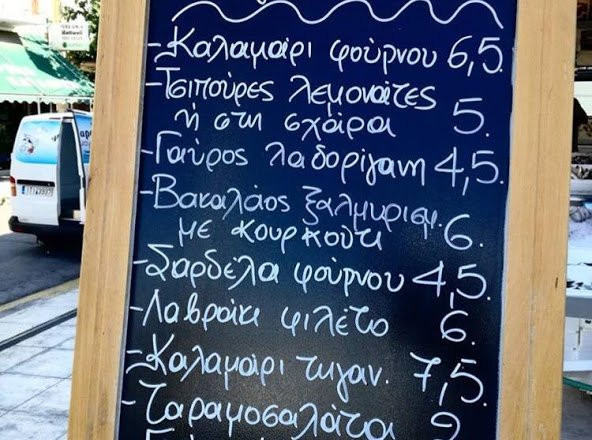 -Καλαμάρι φούρνου 6,5.
-Τσιπούρες λεμονάτες
ή στη σχάρα 5.
-Γαύρος λαδορίγανη 4,5.
-Βακαλάος ξαλμυρισμ.
με κουρκούτι 6.
-Σαρδέλα φούρνου 4,5.
-Λαβράκι φιλέτο 6.
-Καλαμάρι τηγαν. 7,5.
-Ταραμοσαλάτα